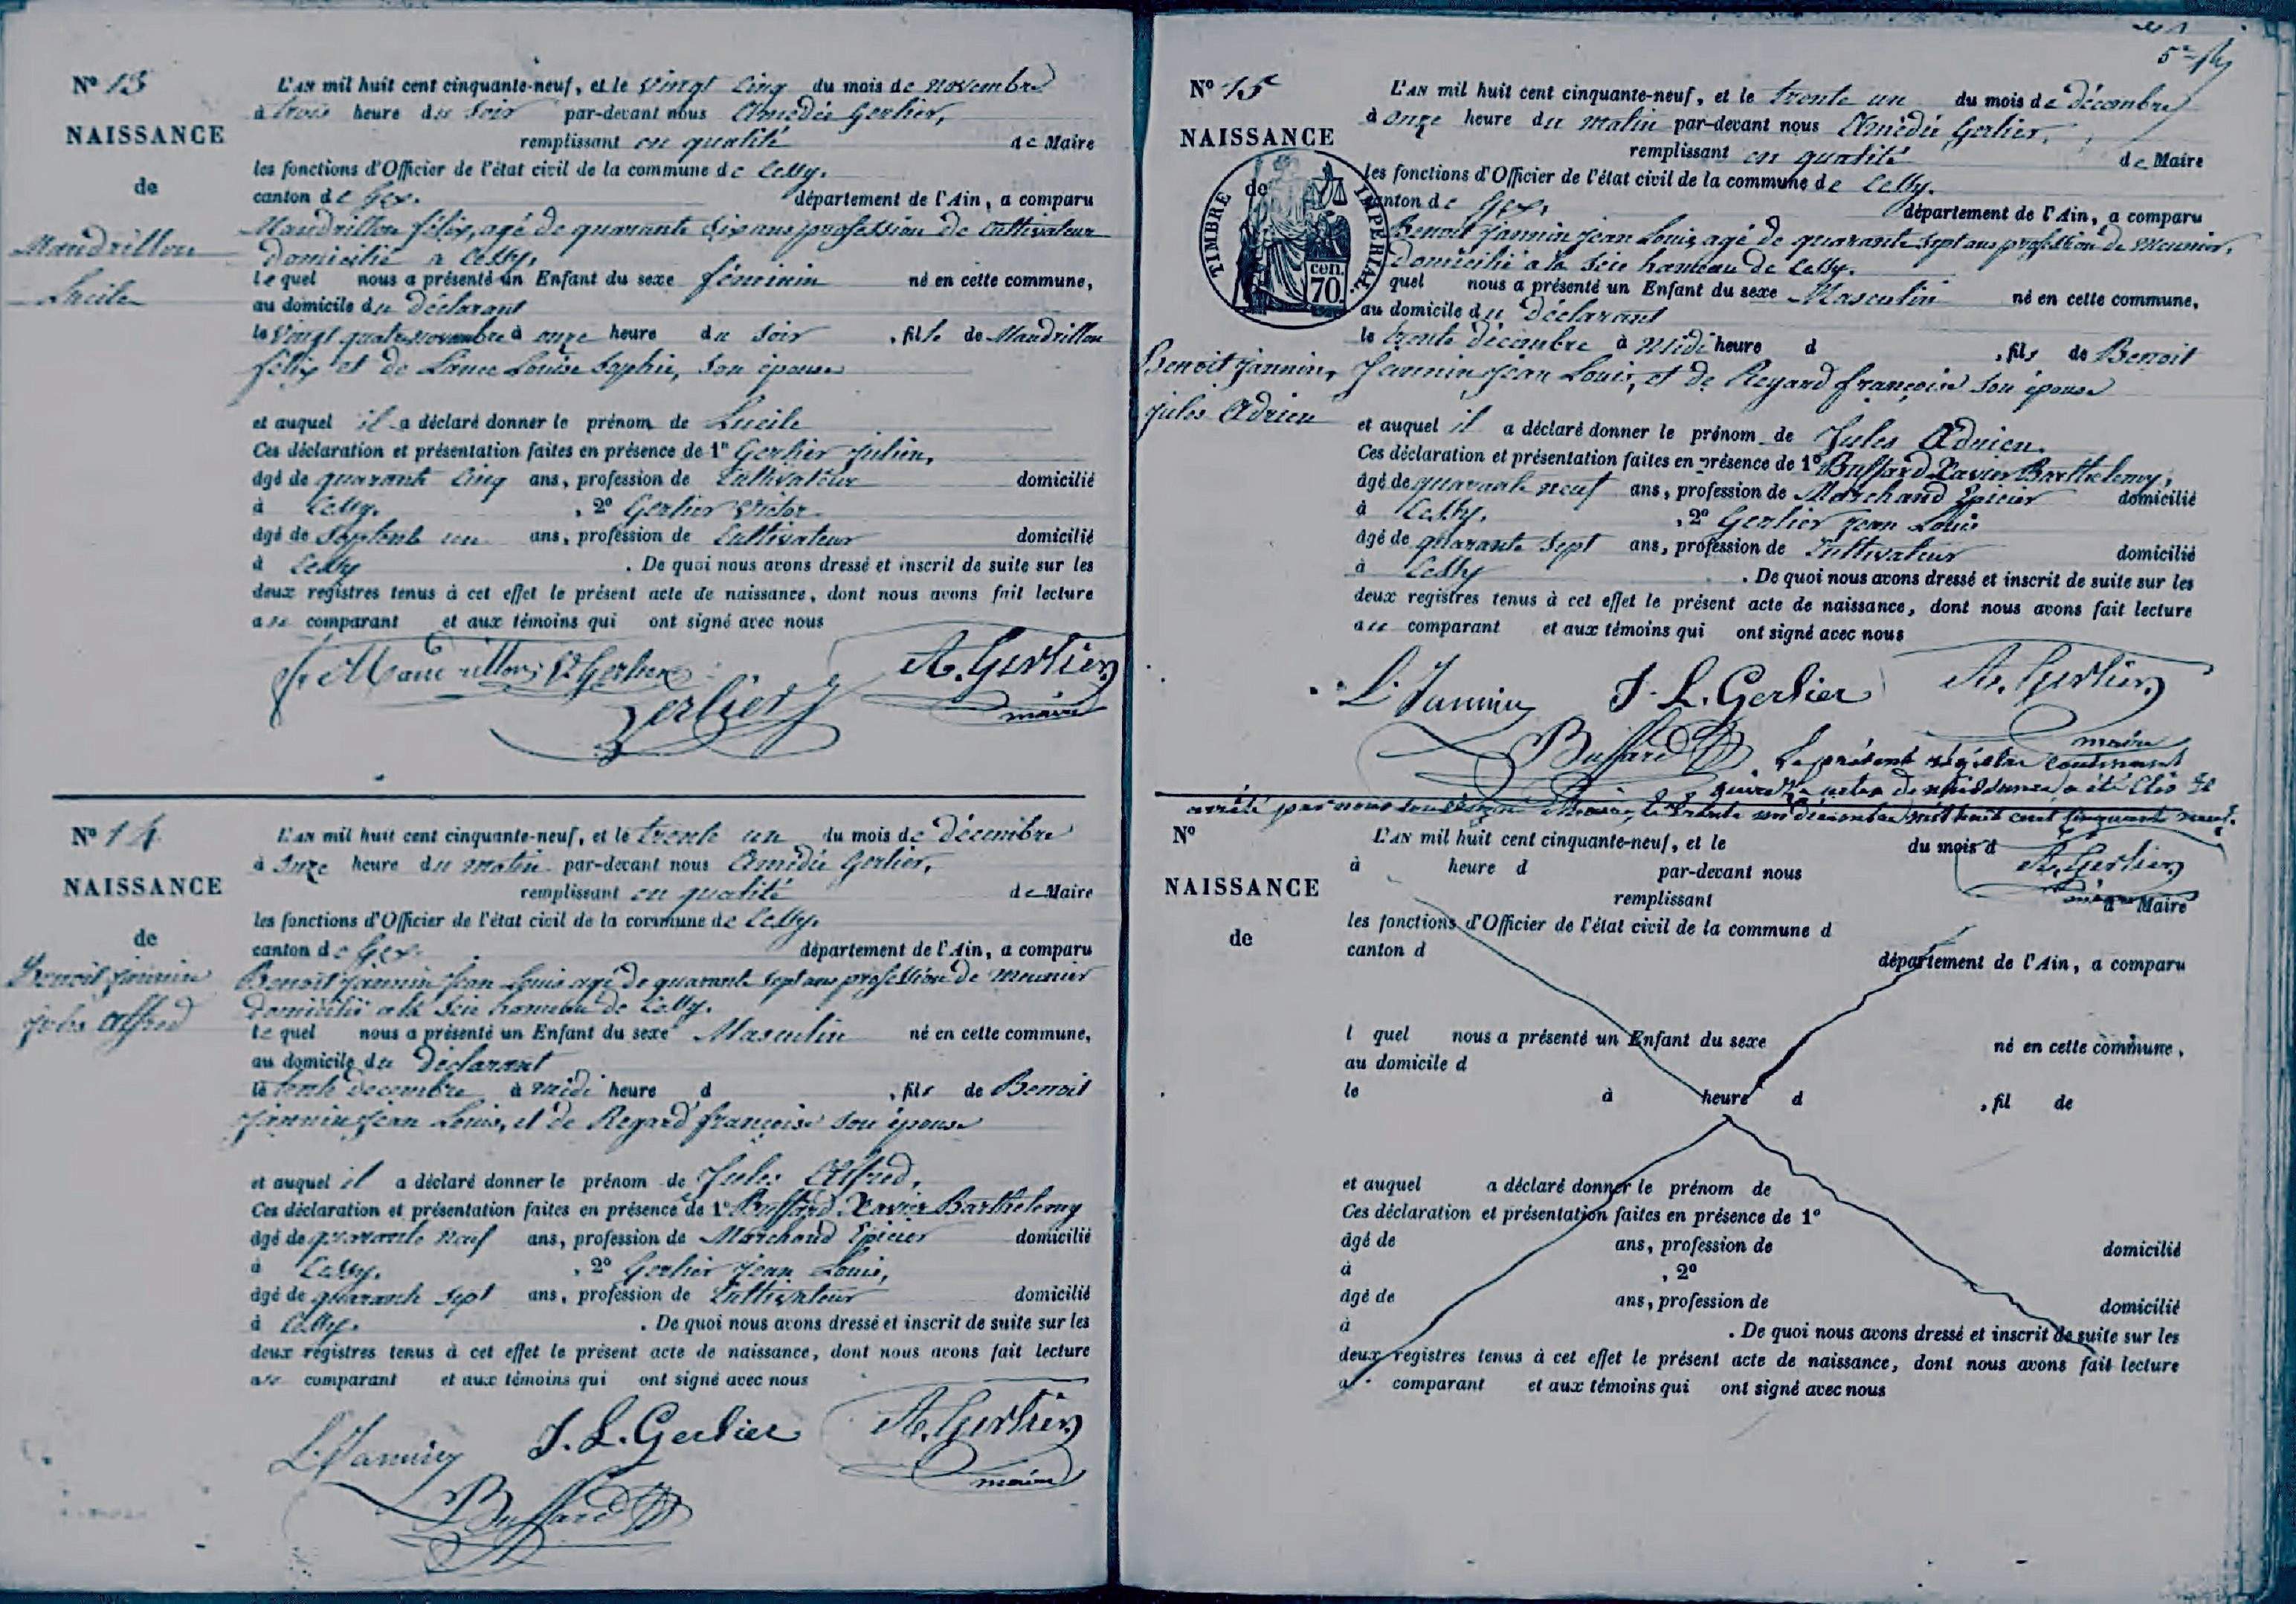 N° 13
NAISSANCE
de
Mandrillon
Lucile
L'AN mil huit cent cinquante-neuf, et le vingt cinq du mois de novembre
à trois heure du soir par-devant nous Amédée Gerlier,
remplissant en qualité de Maire
les fonctions d'Officier de l'état civil de la commune de Cessy.
canton de Gex. département de l'Ain, a comparu
Mandrillon félix, agé de quarante six ans profession de cultivateur
domicilié a Cessy.
Le quel nous a présenté un Enfant du sexe féminin né en cette commune,
au domicile du déclarant
le vingt quatre novembre à onze heure du soir, fille de Mandrillon
félix et de Lance Louise Sophie, son épouse
et auquel il a déclaré donner le prénom de Lucile
Ces déclaration et présentation faites en présence de 1° Gerlier Julien,
âgé de quarante cinq ans, profession de Cultivateur domicilié
à Cessy. , 2° Gerlier Victor
âgé de Septente un ans, profession de Cultivateur domicilié
à Cessy . De quoi nous avons dressé et inscrit de suite sur les
deux registres tenus à cet effet le présent acte de naissance, dont nous avons fait lecture
au comparant et aux témoins qui ont signé avec nous
f. Mandrillon Vr Gerlier A. Gerlier
Gerlier J maire
N° 14
NAISSANCE
de
Benoit Jannin
jules Alfred
L'AN mil huit cent cinquante-neuf, et le trente un du mois de décembre
à onze heure du matin par-devant nous Amédée Gerlier,
remplissant en qualité de Maire
les fonctions d'Officier de l'état civil de la commune de Cessy.
canton de Gex. département de l'Ain, a comparu
Benoit Jannin Jean Louis agé de quarante sept ans profession de meunier
domicilié a la Scie hameau de Cessy.
Le quel nous a présenté un Enfant du sexe Masculin né en cette commune,
au domicile du déclarant
le trente decembre à midi heure d , fils de Benoit
Jannin Jean Louis, et de Regard françoise son épouse
et auquel il a déclaré donner le prénom de Jules Alfred.
Ces déclaration et présentation faites en présence de 1° Buffard Xavier Barthelemy
âgé de quarante neuf ans, profession de Marchand Epicier domicilié
à Cessy. , 2° Gerlier Jean Louis,
âgé de quarante sept ans, profession de Cultivateur domicilié
à Cessy. . De quoi nous avons dressé et inscrit de suite sur les
deux registres tenus à cet effet le présent acte de naissance, dont nous avons fait lecture
au comparant et aux témoins qui ont signé avec nous
L. Jannin J. L. Gerlier A. Gerlier
Buffard maire
N° 15
NAISSANCE
de
TIMBRE IMPERIAL.
cen.
70
Benoit Jannin,
jules Adrien
L'AN mil huit cent cinquante-neuf, et le trente un du mois de décembre
à onze heure du matin par-devant nous Amédée Gerlier,
remplissant en qualité de Maire
les fonctions d'Officier de l'état civil de la commune de Cessy.
canton de Gex, département de l'Ain, a comparu
Benoit Jannin Jean Louis, agé de quarante sept ans profession de meunier,
domicilié a la Scie hameau de Cessy.
quel nous a présenté un Enfant du sexe Masculin né en cette commune,
au domicile du déclarant
le trente décembre à midi heure d , fils de Benoit
Jannin Jean Louis, et de Regard françoise son épouse
et auquel il a déclaré donner le prénom de Jules Adrien.
Ces déclaration et présentation faites en présence de 1° Buffard Xavier Barthelemy,
âgé de quarante neuf ans, profession de Marchand Epicier domicilié
à Cessy. , 2° Gerlier Jean Louis
âgé de quarante sept ans, profession de Cultivateur domicilié
à Cessy . De quoi nous avons dressé et inscrit de suite sur les
deux registres tenus à cet effet le présent acte de naissance, dont nous avons fait lecture
au comparant et aux témoins qui ont signé avec nous
L. Jannin J. L. Gerlier A. Gerlier
Buffard maire
Le présent régistre contenant
quinze actes de naissance a été clos et
arrêté par nous soussigné Maire, le trente un décembre mil huit cent cinquante neuf.
A. Gerlier
maire
N°
NAISSANCE
de
L'AN mil huit cent cinquante-neuf, et le du mois d
à heure d par-devant nous
remplissant d Maire
les fonctions d'Officier de l'état civil de la commune d
canton d département de l'Ain, a comparu
l quel nous a présenté un Enfant du sexe né en cette commune,
au domicile d
le à heure d , fil de
et auquel a déclaré donner le prénom de
Ces déclaration et présentation faites en présence de 1°
âgé de ans, profession de domicilié
à , 2°
âgé de ans, profession de domicilié
à . De quoi nous avons dressé et inscrit de suite sur les
deux registres tenus à cet effet le présent acte de naissance, dont nous avons fait lecture
a comparant et aux témoins qui ont signé avec nous